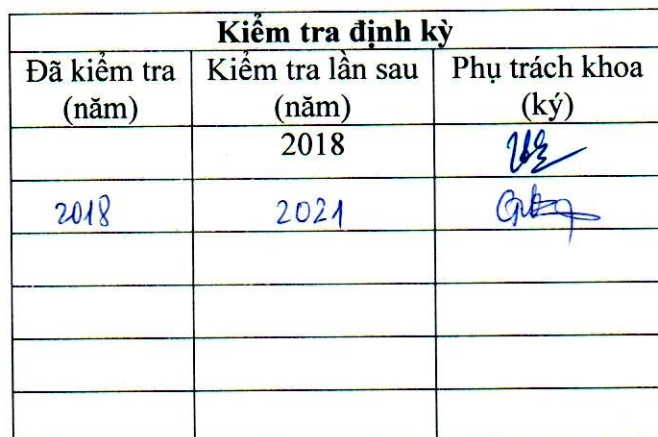 Kiểm tra định kỳ
Đã kiểm tra (năm) Kiểm tra lần sau (năm) Phụ trách khoa (ký)
2018
2018 2021